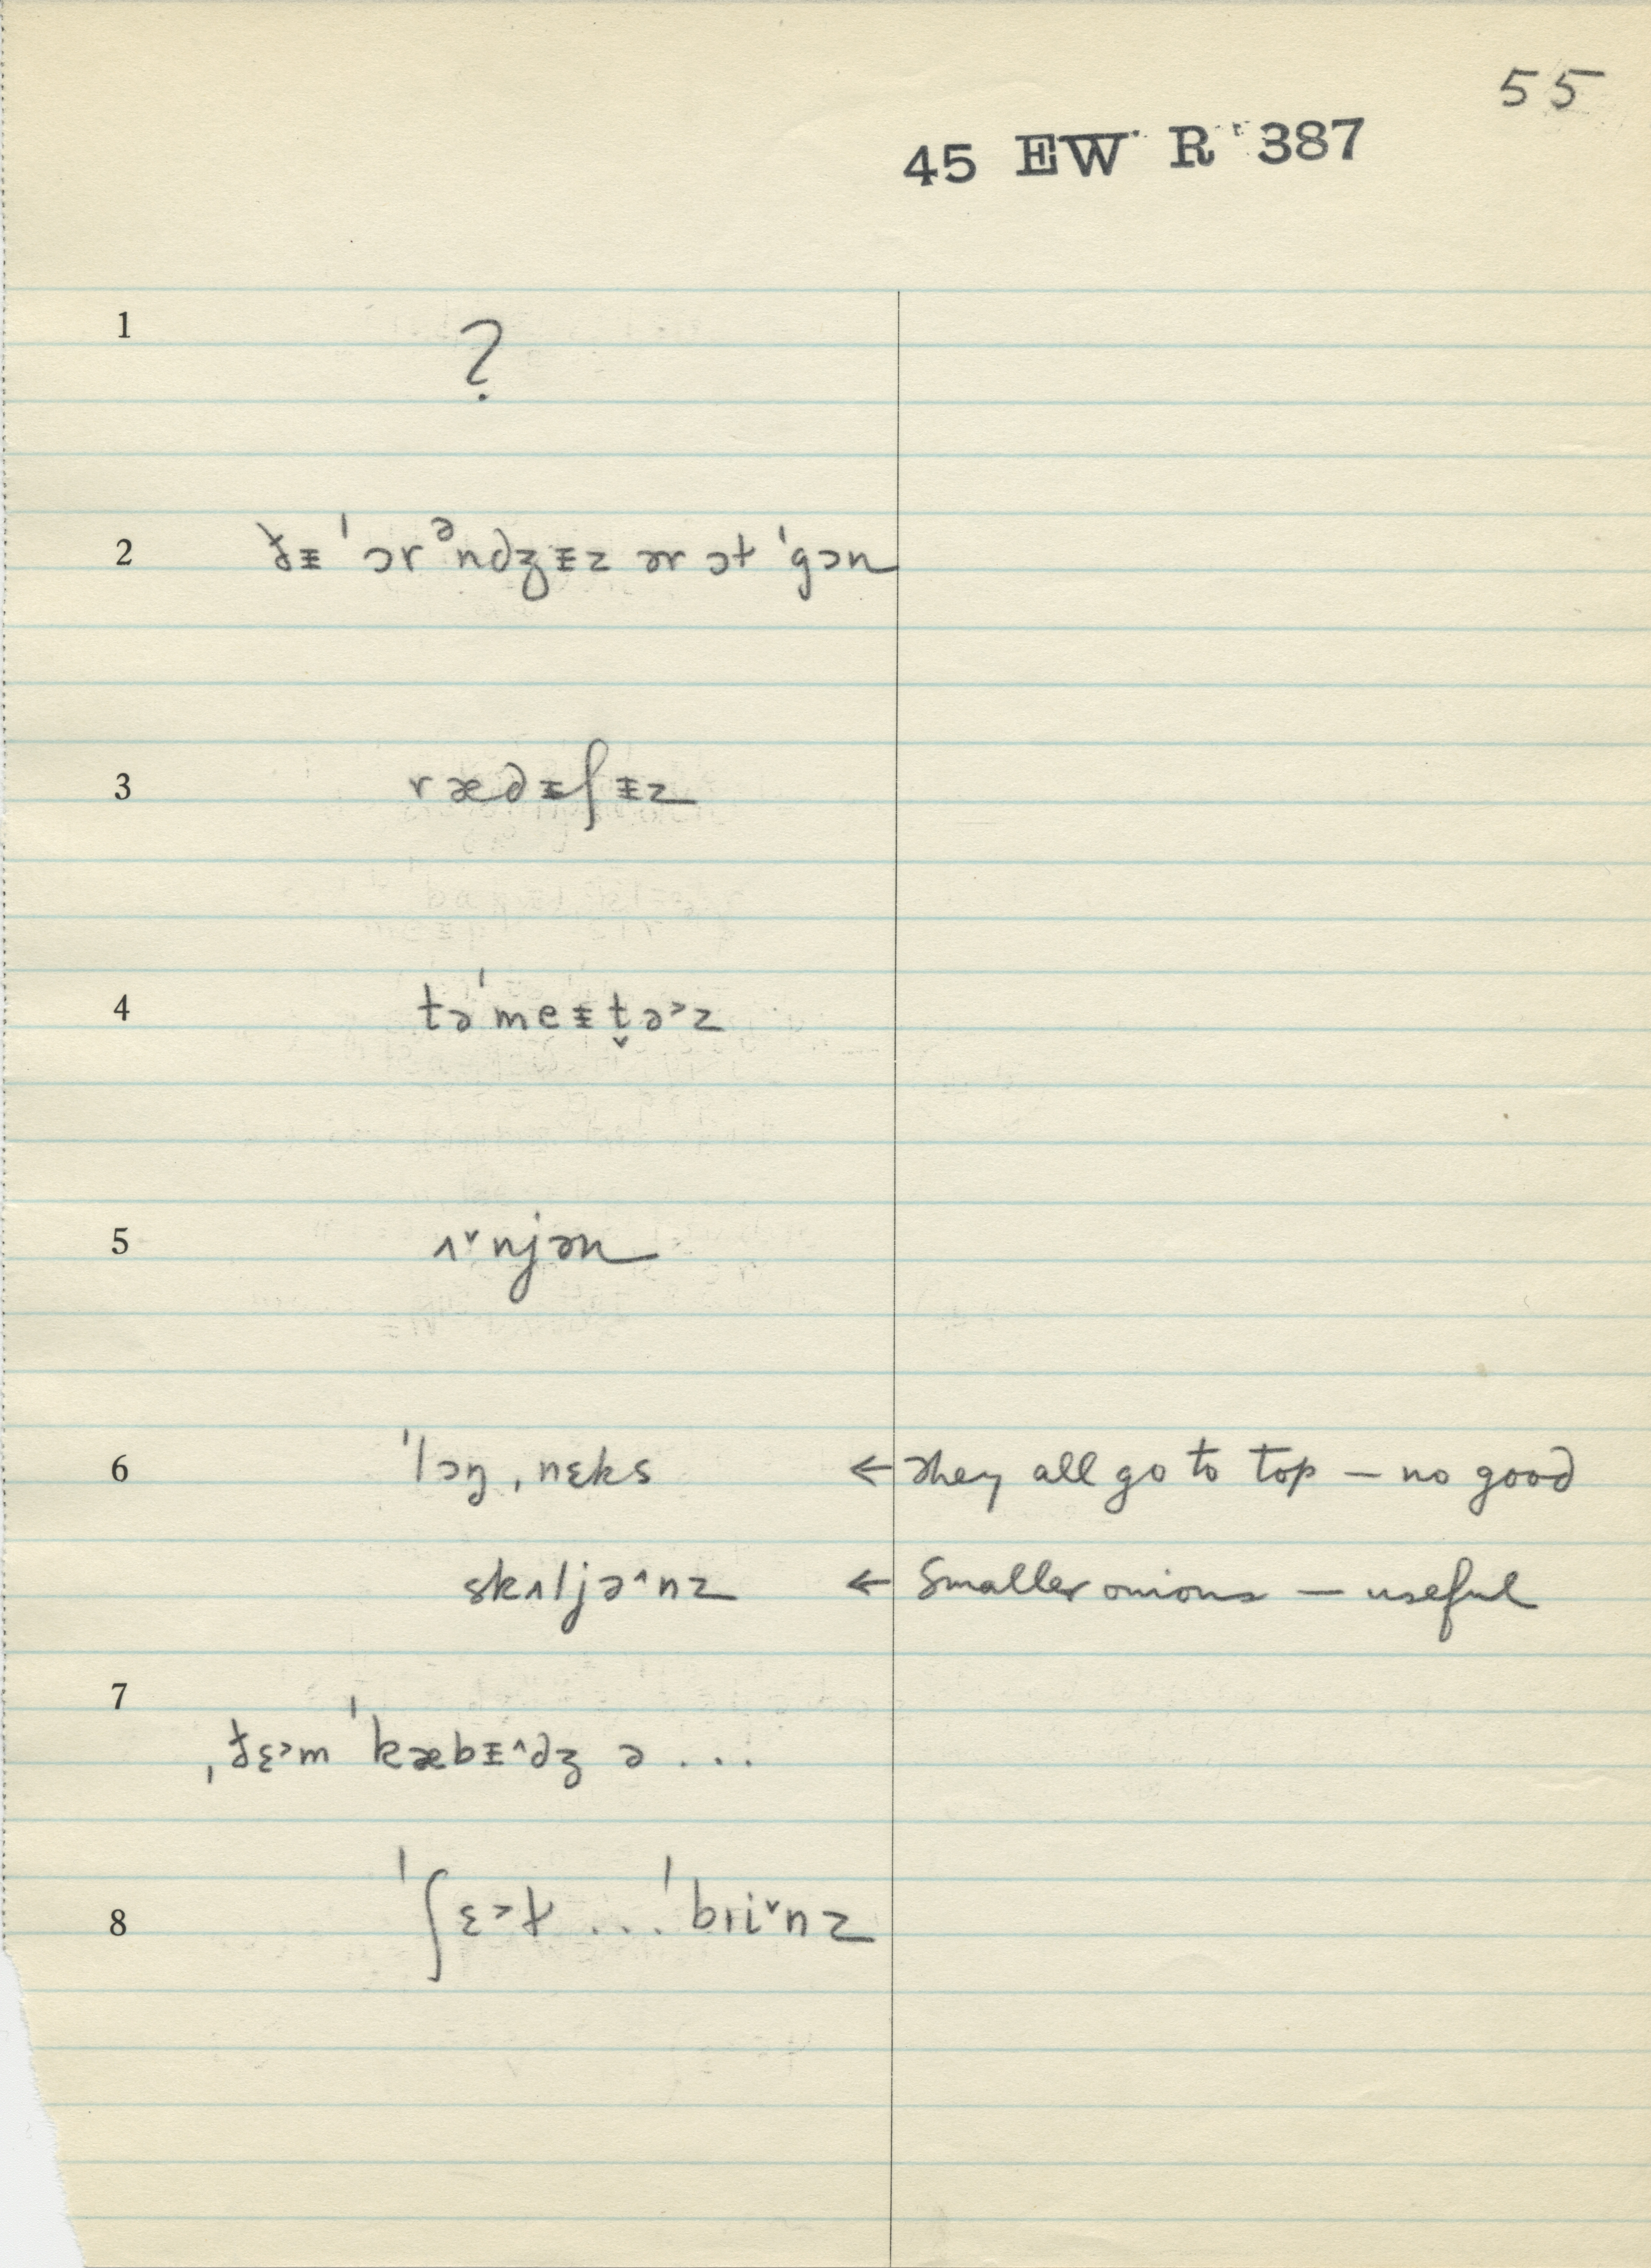 55
45 EW R 387
1
?
2
ðɪ̵ ˈɔrᵊndʒɪ̵z ər ɔt ˈgɔn
3
rædɪ̵ʃɪ̵z
4
təˈmeɪ̵t̬ə˃z
5
ʌ˅njən
6
ˈlɔŋˌnɛks ← They all go to top — no good
skʌljə˄nz ← Smaller onions — useful
7
ˌðɛ˃m ˈkæbɪ̵˄dʒ ə ...
8
ˈʃɛ˃t ... ˈbɪi˅nz